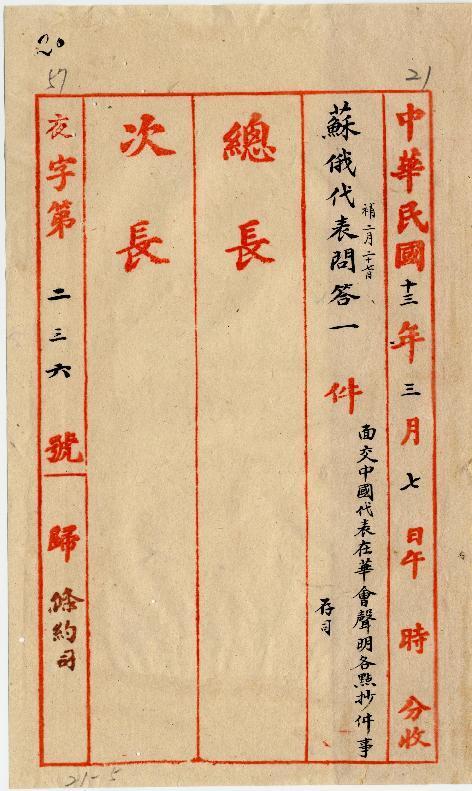 20
57
21
中華民國十三年三月七日午時分收
補二月二十七日
蘇俄代表問答一件
面交中國代表在華會聲明各點抄件事
存司
總長
次長
夜字第二三六號歸條約司
21-5